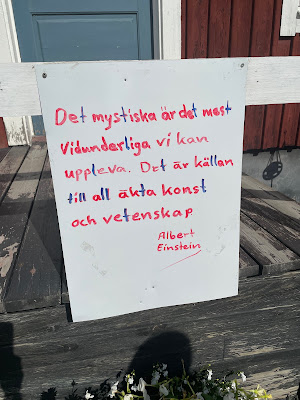 Det mystiska är det mest
Vidunderliga vi kan
uppleva. Det är källan
till all äkta konst
och vetenskap
Albert
Einstein